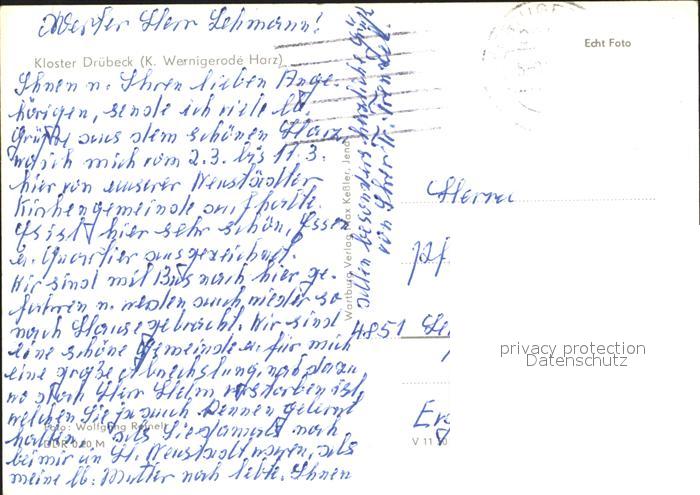 Werter Herr Lehmann!
Kloster Drübeck (K. Wernigerode Harz)
Ihnen u. Ihren lieben Ange-
hörigen, sende ich viele lb.
Grüße aus dem schönen Harz,
wo ich mich vom 2.3. bis 11.3.
hier von unserer Neustädter
Kirchengemeinde aufhalte.
Es ist hier sehr schön, Essen
u. Quartier ausgezeichnet.
Wir sind mit Bus nach hier ge-
fahren u. werden auch wieder so
nach Hause gebracht. Wir sind
eine schöne Gemeinde u. für mich
eine große Abwechslung, noch dazu
wo doch Herr Helm verstorben ist,
welchen Sie ja auch kennen gelernt
hatten, als Sie damals noch
bei mir in Lt. Neustadt waren, als
meine lb. Mutter noch lebte. Ihnen
allen
von
Foto: Wolfgang Reinelt
DDR 0,20 M
Wartburg Verlag Max Keßler, Jena
V 11 50
Echt Foto
Herrn
Pf
4851
privacy protection
Datenschutz